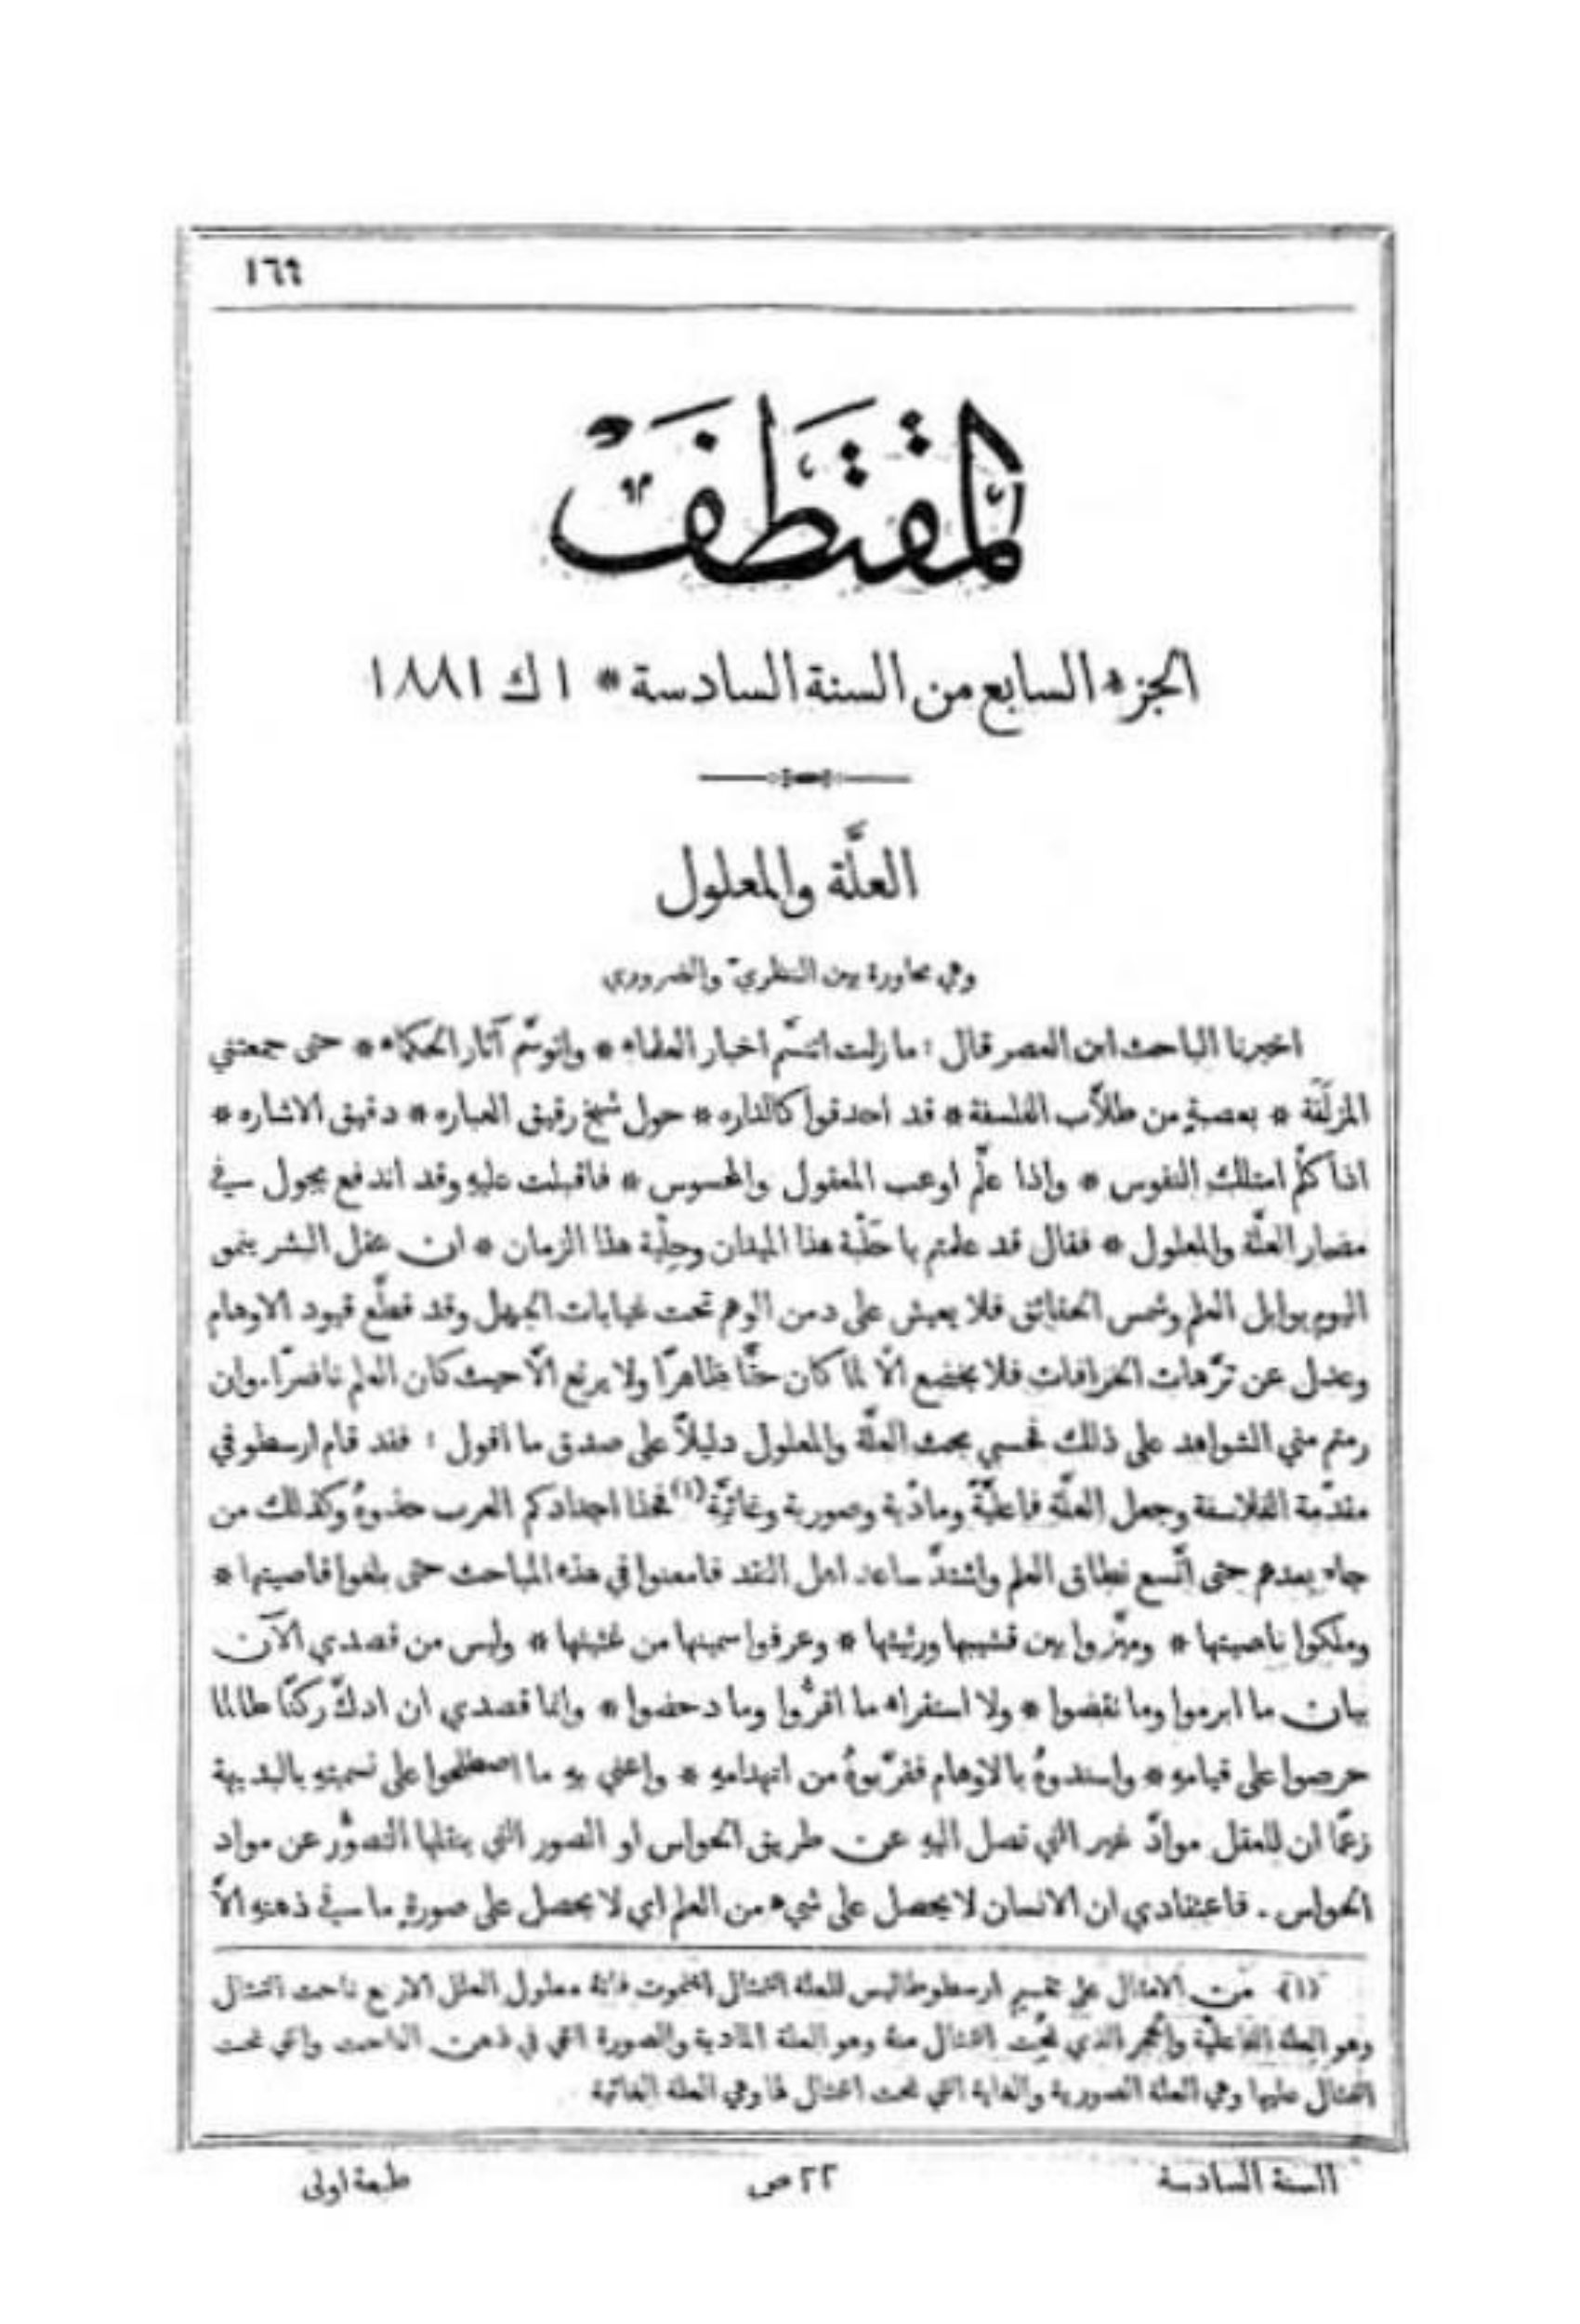 ١٦٩
المقتطف
الجزء السابع من السنة السادسة * ١ ك ١ ١٨٨١
العلَّة والمعلول
وهي محاورة بين النظريّ والضروري
اخبرنا الباحث ابن العصر قال : ما زلت اتنسَّم اخبار العلماء * واتوسَّم آثار الحكماء * حتى جمعتني
المزلَّفة * بعصبةٍ من طلاَّب الفلسفة * قد احدقوا كالداره * حول شيخ رقيق العباره * دقيق الاشاره *
اذا كلَّم امتلك النفوس * واذا علَّم اوعب المعقول والمحسوس * فاقبلت عليهِ وقد اندفع يجول في
مضمار العلَّة والمعلول * فقال قد علمتم يا حَلْبة هذا الميدان وحِلْية هذا الزمان * ان عقل البشر ينمو
اليوم بوابل العلم وشمس الحقائق فلا يعيش على دمن الوهم تحت غيابات الجهل وقد قطَّع قيود الاوهام
وعدل عن ترَّهات الخرافات فلا يخضع الَّا لما كان حقًّا ظاهرًا ولا يرتع الَّا حيث كان العلم ناضرًا. وان
رمتم مني الشواهد على ذلك فحسبي بحث العلَّة والمعلول دليلاً على صدق ما اقول : فقد قام ارسطو في
مقدّمة الفلاسفة وجعل العلَّة فاعليَّةً ومادّية وصورية وغائيَّة(١) فحذا اجدادكم العرب حذوهُ وكذلك من
جاء بعدهم حتى اتَّسع نطاق العلم واشتدَّ ساعد اهل النقد فامعنوا في هذه المباحث حتى بلغوا قاصيتها *
وملكوا ناصيتها * وميَّزوا بين قشيبها ورثيثها * وعرفوا سمينها من غثيثها * وليس من قصدي الآن
بيان ما ابرموا وما نقضوا * ولا استقراء ما اقرُّوا وما دحضوا * وانما قصدي ان ادكَّ ركنًا طالما
حرصوا على قيامهِ * واسندوهُ بالاوهام فقرَّبوهُ من انهدامهِ * واعني بهِ ما اصطلحوا على تسميتهِ بالبديهية
زعمًا ان للعقل موادَّ غير التي تصل اليهِ عن طريق الحواس او الصور التي ينقلها التصوُّر عن مواد
الحواس . فاعتقادي ان الانسان لا يحصل على شيء من العلم اي لا يحصل على صورةٍ ما في ذهنهِ الَّا
(١) من الامثال على تقسيم ارسطوطاليس للعلة التمثال المنحوت فانهُ معلول العلل الاربع ناحت التمثال
وهو العلة الفاعليَّة والحجر الذي نُحِت التمثال منهُ وهو العلة المادية والصورة التي في ذهن الناحت والتي نحت
التمثال عليها وهي العلة الصورية والغاية التي نحت التمثال لها وهي العلة الغائية
السنة السادسة ٢٢ ص طبعة اولى